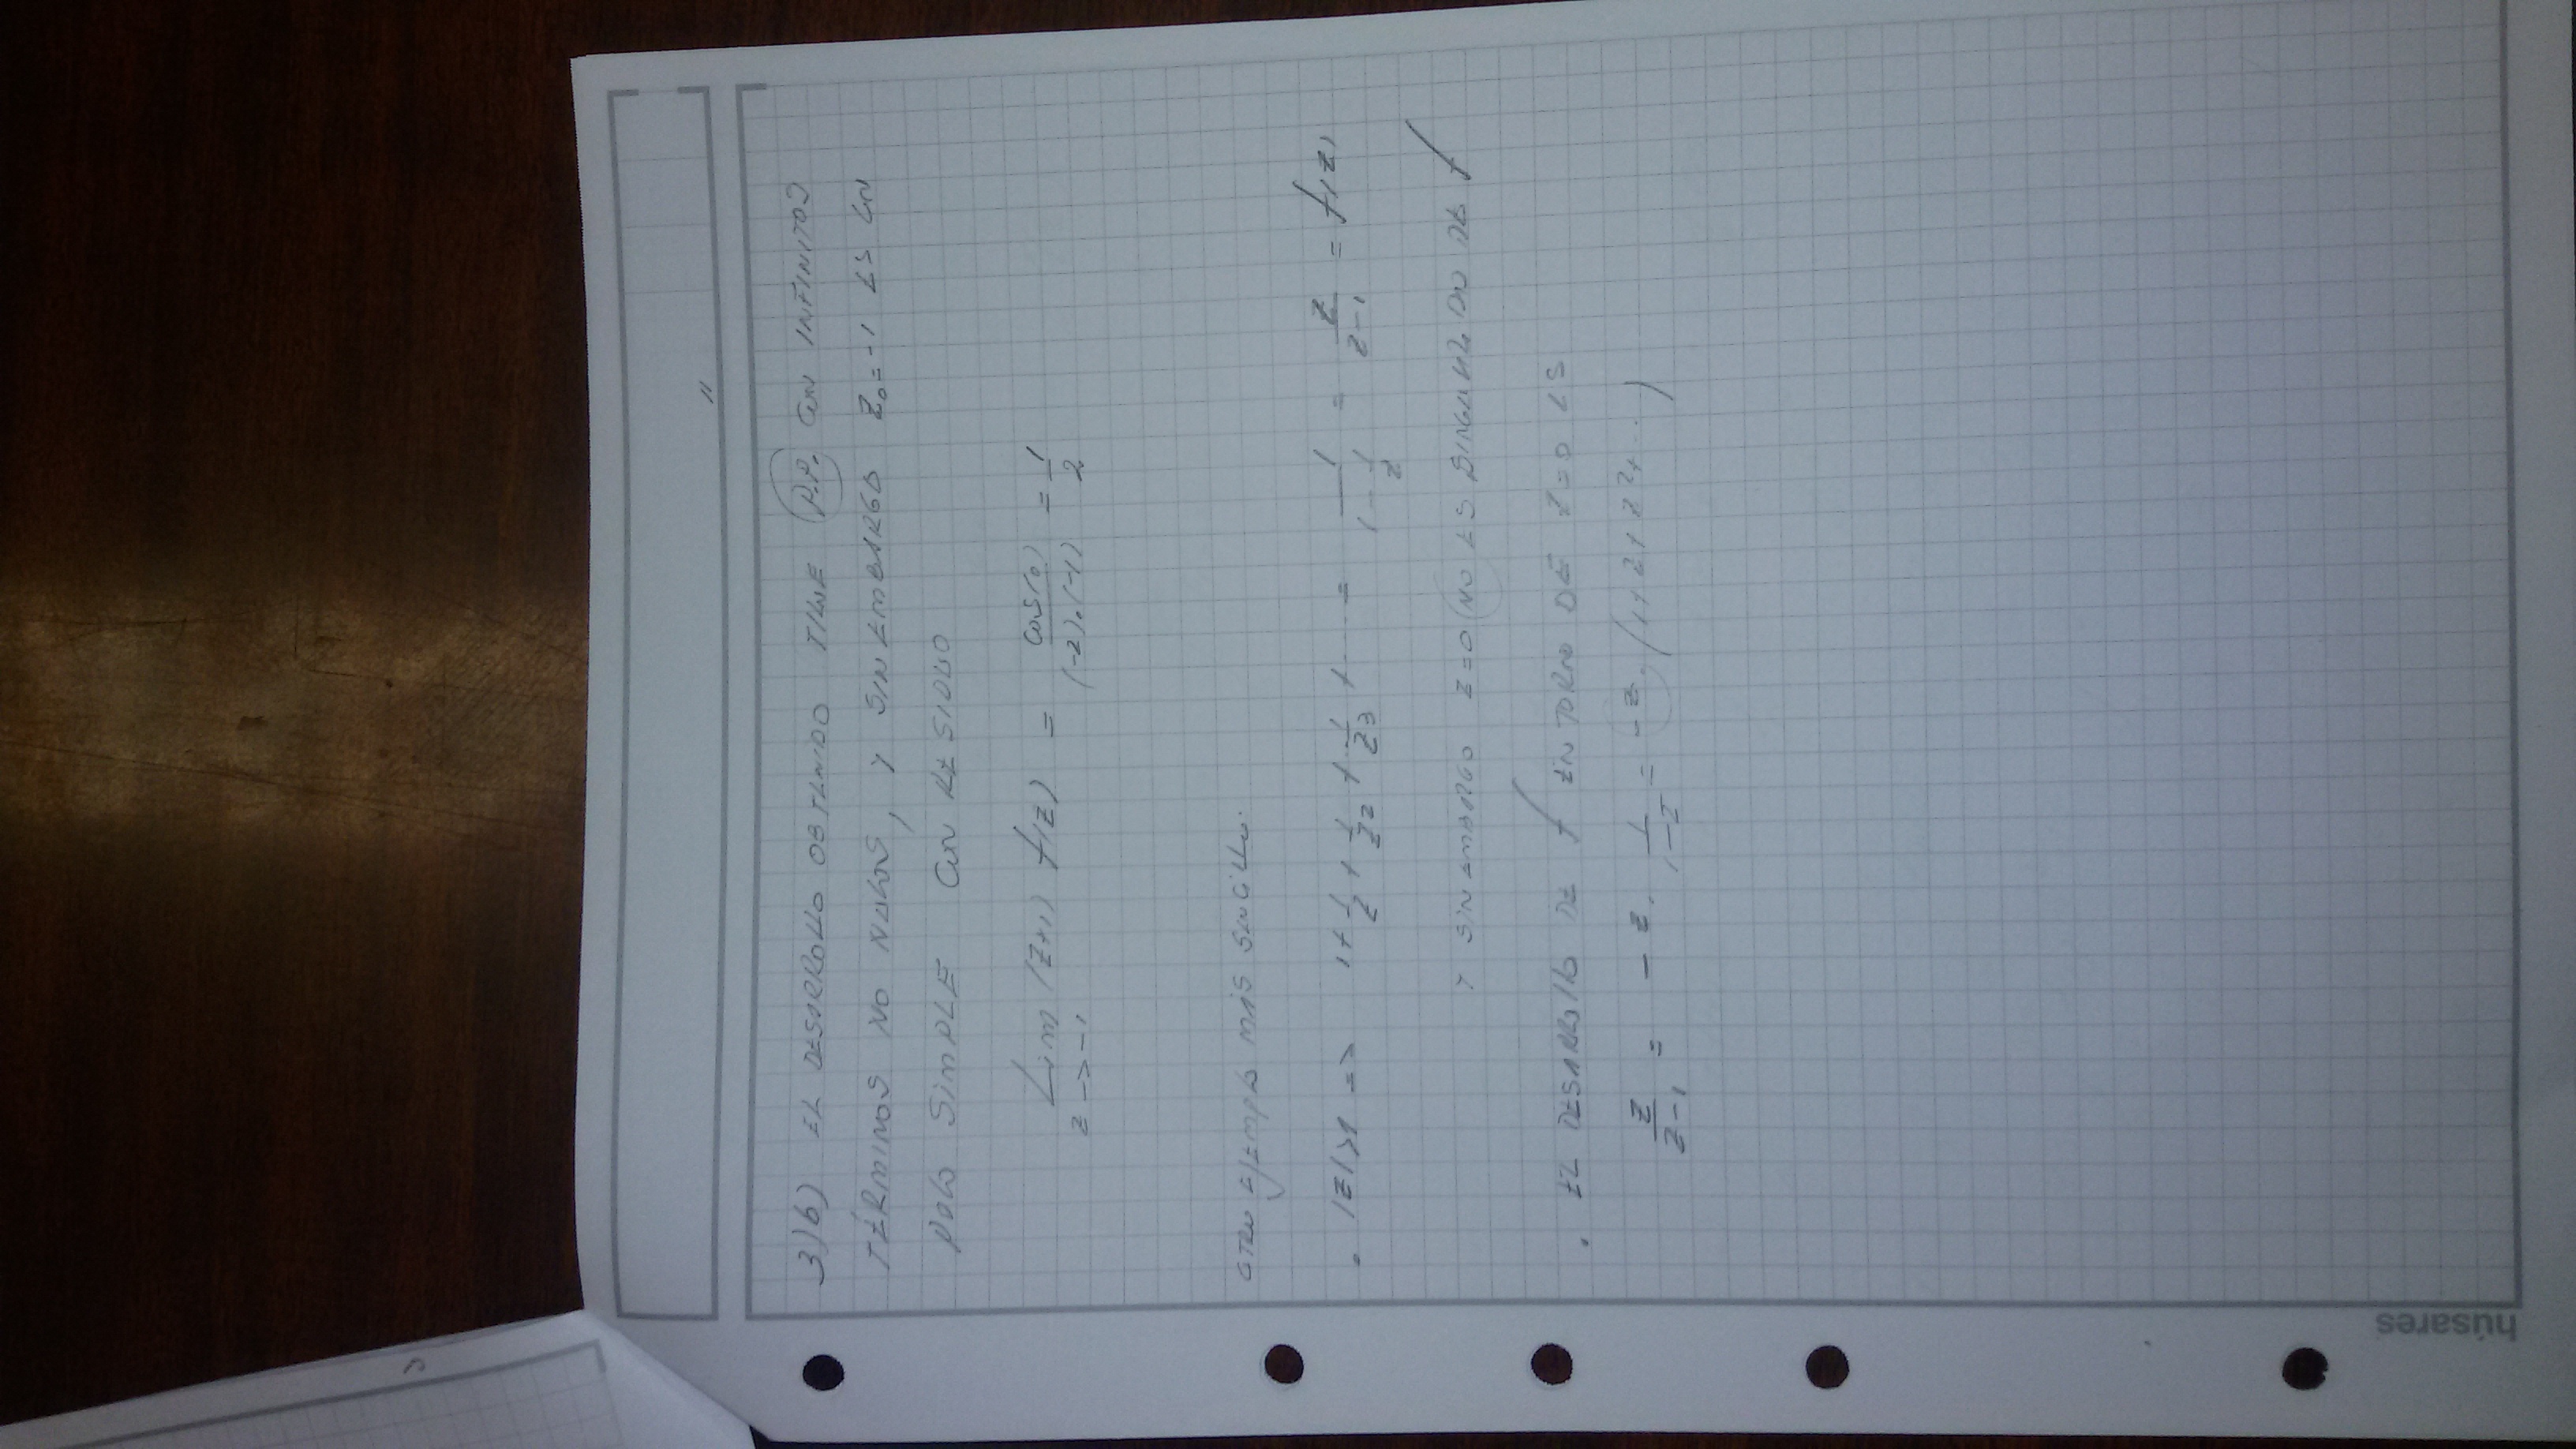 11
3)b) EL DESARROLLO OBTENIDO TIENE P.P. CON INFINITOS
TÉRMINOS NO NULOS, Y SIN EMBARGO Z₀=-1 ES UN
POLO SIMPLE CON RESIDUO
Lim (z+1) f(z) = cos(0) / (-2).(-1) = 1/2
z->-1
OTRO EJEMPLO MÁS SENCILLO.
. |z|>1 => 1+1/z+1/z²+1/z³+.... = 1/(1-1/z) = z/(z-1) = f(z)
Y SIN EMBARGO z=0 NO ES SINGULARIDAD DE f
. EL DESARROLLO DE f EN TORNO DE z=0 ES
z/(z-1) = -z. 1/(1-z) = -z.(1+z+z²+...)
húsares